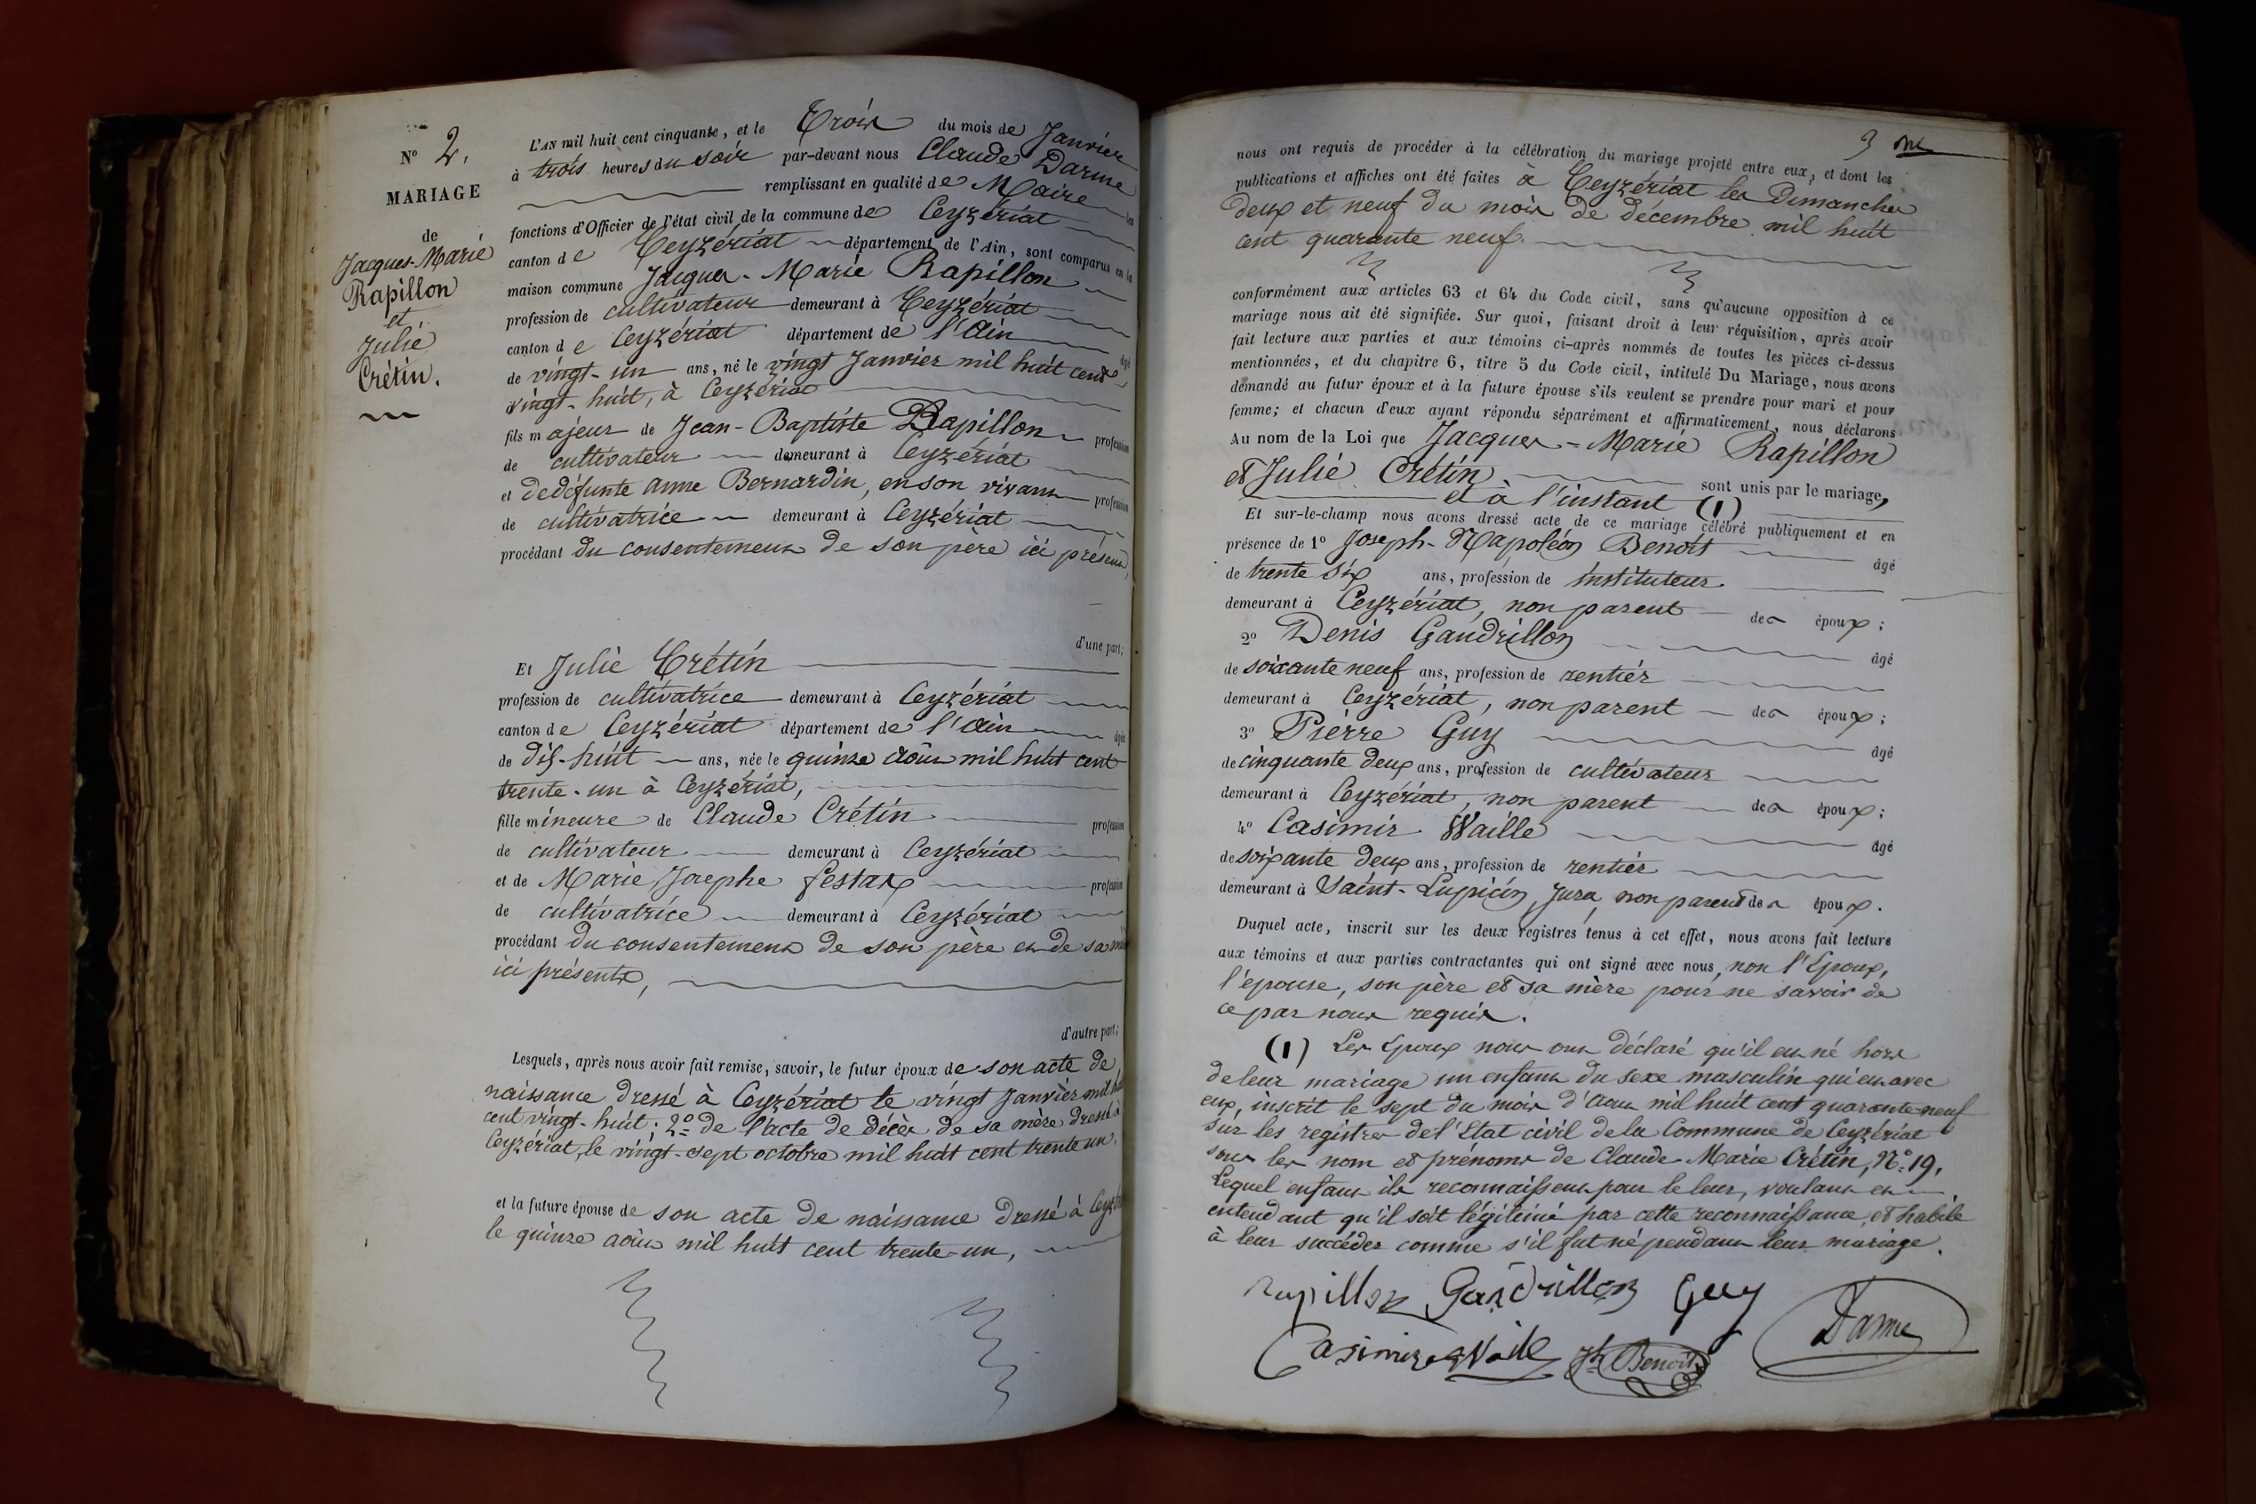 N° 2.
MARIAGE
de
Jacques-Marie
Rapillon
et
Julie
Crétin.
L'AN mil huit cent cinquante, et le Trois du mois de Janvier
à trois heures du soir par-devant nous Claude Darme
remplissant en qualité de Maire les
fonctions d'Officier de l'état civil de la commune de Ceyzériat
canton de Ceyzériat département de l'Ain, sont comparus en la
maison commune Jacques-Marie Rapillon
profession de cultivateur demeurant à Ceyzériat
canton de Ceyzériat département de l'Ain âgé
de vingt-un ans, né le vingt Janvier mil huit cent
vingt-huit, à Ceyzériat
fils majeur de Jean-Baptiste Rapillon profession
de cultivateur demeurant à Ceyzériat
et de défunte Anne Bernardin, en son vivant profession
de cultivatrice demeurant à Ceyzériat
procédant du consentement de son père ici présent,
d'une part;
Et Julie Crétin
profession de cultivatrice demeurant à Ceyzériat
canton de Ceyzériat département de l'Ain âgée
de dix-huit ans, née le quinze août mil huit cent
trente-un à Ceyzériat,
fille mineure de Claude Crétin profession
de cultivateur demeurant à Ceyzériat
et de Marie Josephe Festaz profession
de cultivatrice demeurant à Ceyzériat
procédant du consentement de son père et de sa mère
ici présents,
d'autre part;
Lesquels, après nous avoir fait remise, savoir, le futur époux de son acte de
naissance dressé à Ceyzériat le vingt Janvier mil huit
cent vingt-huit; 2° de l'acte de décès de sa mère dressé à
Ceyzériat, le vingt-sept octobre mil huit cent trente un,
et la future épouse de son acte de naissance dressé à Ceyzériat
le quinze août mil huit cent trente-un,
3
nous ont requis de procéder à la célébration du mariage projeté entre eux, et dont les
publications et affiches ont été faites à Ceyzériat les Dimanches
deux et neuf du mois de décembre mil huit
cent quarante neuf.
conformément aux articles 63 et 64 du Code civil, sans qu'aucune opposition à ce
mariage nous ait été signifiée. Sur quoi, faisant droit à leur réquisition, après avoir
fait lecture aux parties et aux témoins ci-après nommés de toutes les pièces ci-dessus
mentionnées, et du chapitre 6, titre 5 du Code civil, intitulé Du Mariage, nous avons
demandé au futur époux et à la future épouse s'ils veulent se prendre pour mari et pour
femme; et chacun d'eux ayant répondu séparément et affirmativement, nous déclarons
Au nom de la Loi que Jacques-Marie Rapillon
et Julie Crétin sont unis par le mariage,
et à l'instant (1)
Et sur-le-champ nous avons dressé acte de ce mariage célébré publiquement et en
présence de 1° Joseph-Napoléon Benoit âgé
de trente six ans, profession de instituteur
demeurant à Ceyzériat, non parent des époux;
2° Denis Gaudrillon âgé
de soixante neuf ans, profession de rentier
demeurant à Ceyzériat, non parent des époux;
3° Pierre Guy âgé
de cinquante deux ans, profession de cultivateur
demeurant à Ceyzériat, non parent des époux;
4° Casimir Waille âgé
de soixante deux ans, profession de rentier
demeurant à Saint-Lupicin, Jura, non parent des époux.
Duquel acte, inscrit sur les deux registres tenus à cet effet, nous avons fait lecture
aux témoins et aux parties contractantes qui ont signé avec nous, non l'Epoux,
l'épouse, son père et sa mère pour ne savoir de
ce par nous requis.
(1) Les Epoux nous ont déclaré qu'il est né hors
de leur mariage un enfant du sexe masculin qui est avec
eux, inscrit le sept du mois d'Aout mil huit cent quarante-neuf
sur les registres de l'Etat civil de la Commune de Ceyzériat
sous les nom et prénoms de Claude-Marie Crétin, N° 19.
Lequel enfant ils reconnaissent pour le leur, voulant et
entendant qu'il soit légitimé par cette reconnaissance, et habile
à leur succéder comme s'il fut né pendant leur mariage.
Rapillon Gaudrillon Guy
Casimir Waille Jh Benoit Darme